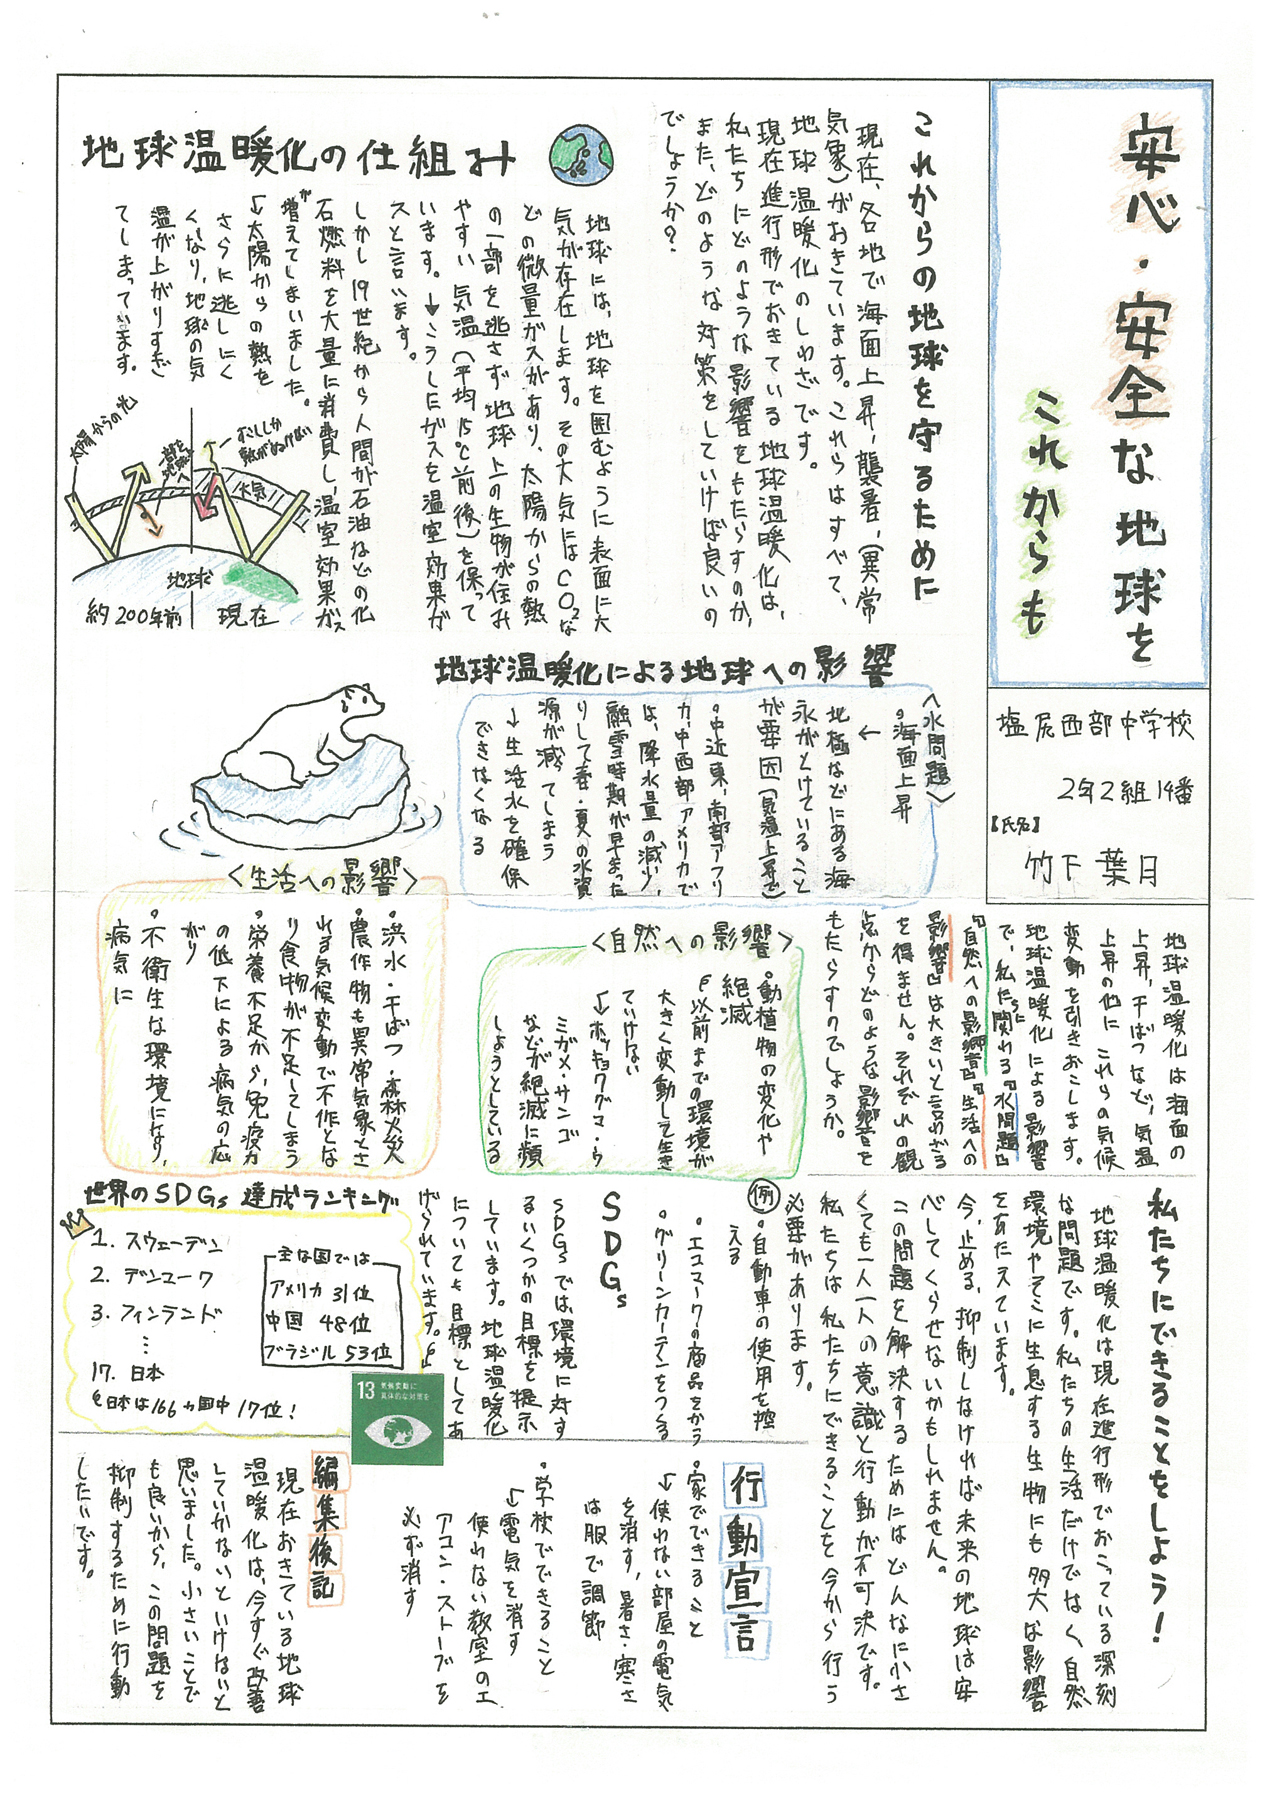 安心・安全な地球を
これからも
塩尻西部中学校
2年2組14番
【氏名】
竹下葉月
これからの地球を守るために
現在、各地で海面上昇、襲暑、(異常
気象)がおきています。これらはすべて、
地球温暖化のしわざです。
現在進行形でおきている地球温暖化は、
私たちにどのような影響をもたらすのか、
また、どのような対策をしていけば良いの
でしょうか?
地球温暖化の仕組み
地球には、地球を囲むように表面に大
気が存在します。その大気にはCO2な
どの微量ガスがあり、太陽からの熱
の一部を逃さず地球上の生物が住み
やすい気温(平均15℃前後)を保って
います。→こうしたガスを温室効果ガ
スと言います。
しかし19世紀から人間が石油などの化
石燃料を大量に消費し、温室効果ガス
が増えてしまいました。
↓太陽からの熱を
さらに逃しにく
くなり、地球の気
温が上がりすぎ
てしまっています。
太陽からの光
大気
地球
約200年前
現在
地球温暖化による地球への影響
〈水問題〉
•海面上昇
↑
北極などにある海
氷がとけていること
が要因(気温上昇で)
•中近東、南部アフリ
カ、中西部アメリカで
は、降水量の減少、
融雪時期が早まった
りして春・夏の水資
源が減ってしまう
↓生活水を確保
できなくなる
地球温暖化は海面の
上昇、干ばつなど、気温
上昇の他に これらの気候
変動を引きおこします。
地球温暖化による影響
で、私たちに関わる『水問題』
『自然への影響』『生活への
影響』は大きいと言わざる
を得ません。それぞれの観
点からどのような影響を
もたらすのでしょうか。
〈自然への影響〉
•動植物の変化や
絶滅
以前までの環境が
大きく変動して生き
ていけない
↓ホッキョクグマ・ウ
ミガメ・サンゴ
などが絶滅に頻
しようとしている
〈生活への影響〉
•洪水・干ばつ・森林火災
•農作物も異常気象とさ
れる気候変動で不作とな
り食物が不足してしまう
•栄養不足から、免疫力
の低下による病気の広
がり
•不衛生な環境になり、
病気に
私たちにできることをしよう!
地球温暖化は現在進行形でおこっている深刻
な問題です。私たちの生活だけでなく、自然
環境やそこに生息する生物にも多大な影響
をあたえています。
今、止める、抑制しなければ未来の地球は安
心してくらせないかもしれません。
この問題を解決するためにはどんなに小さ
くても一人一人の意識と行動が不可決です。
私たちは私たちにできることを今から行う
必要があります。
例
•自動車の使用を控
える
•エコマークの商品をかう
•グリーンカーテンをつくる
SDGs
SDGsでは、環境に対す
るいくつかの目標を提示
しています。地球温暖化
についても目標としてあ
げられています。
13 気候変動に
具体的な対策を
世界のSDGs達成ランキング
1. スウェーデン
2. デンマーク
3. フィンランド
⋮
17. 日本
日本は166ヵ国中 17位!
主な国では
アメリカ 31位
中国 48位
ブラジル 53位
行動宣言
•家でできること
↓使わない部屋の電気
を消す、暑さ・寒さ
は服で調節
•学校でできること
↓電気を消す
使わない教室のエ
アコン・ストーブを
必ず消す
編集後記
現在おきている地球
温暖化は、今すぐ改善
していかないといけないと
思いました。小さいことで
も良いから、この問題を
抑制するために行動
したいです。